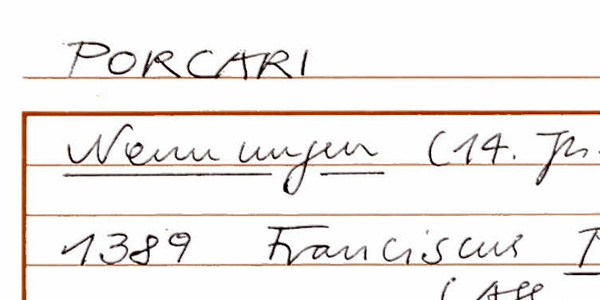 PORCARI
Nennungen (14. Jh.
1389 Franciscus